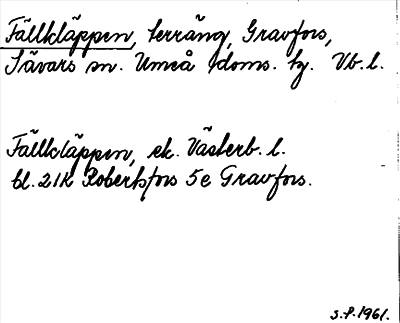 Fällkläppen, terräng, Gravfors,
Sävars sn. Umeå doms. hg. Vb. l.
Fällkläppen, ek. Västerb. l.
bl. 21K Robertsfors 5e Gravfors.
s.f. 1961.